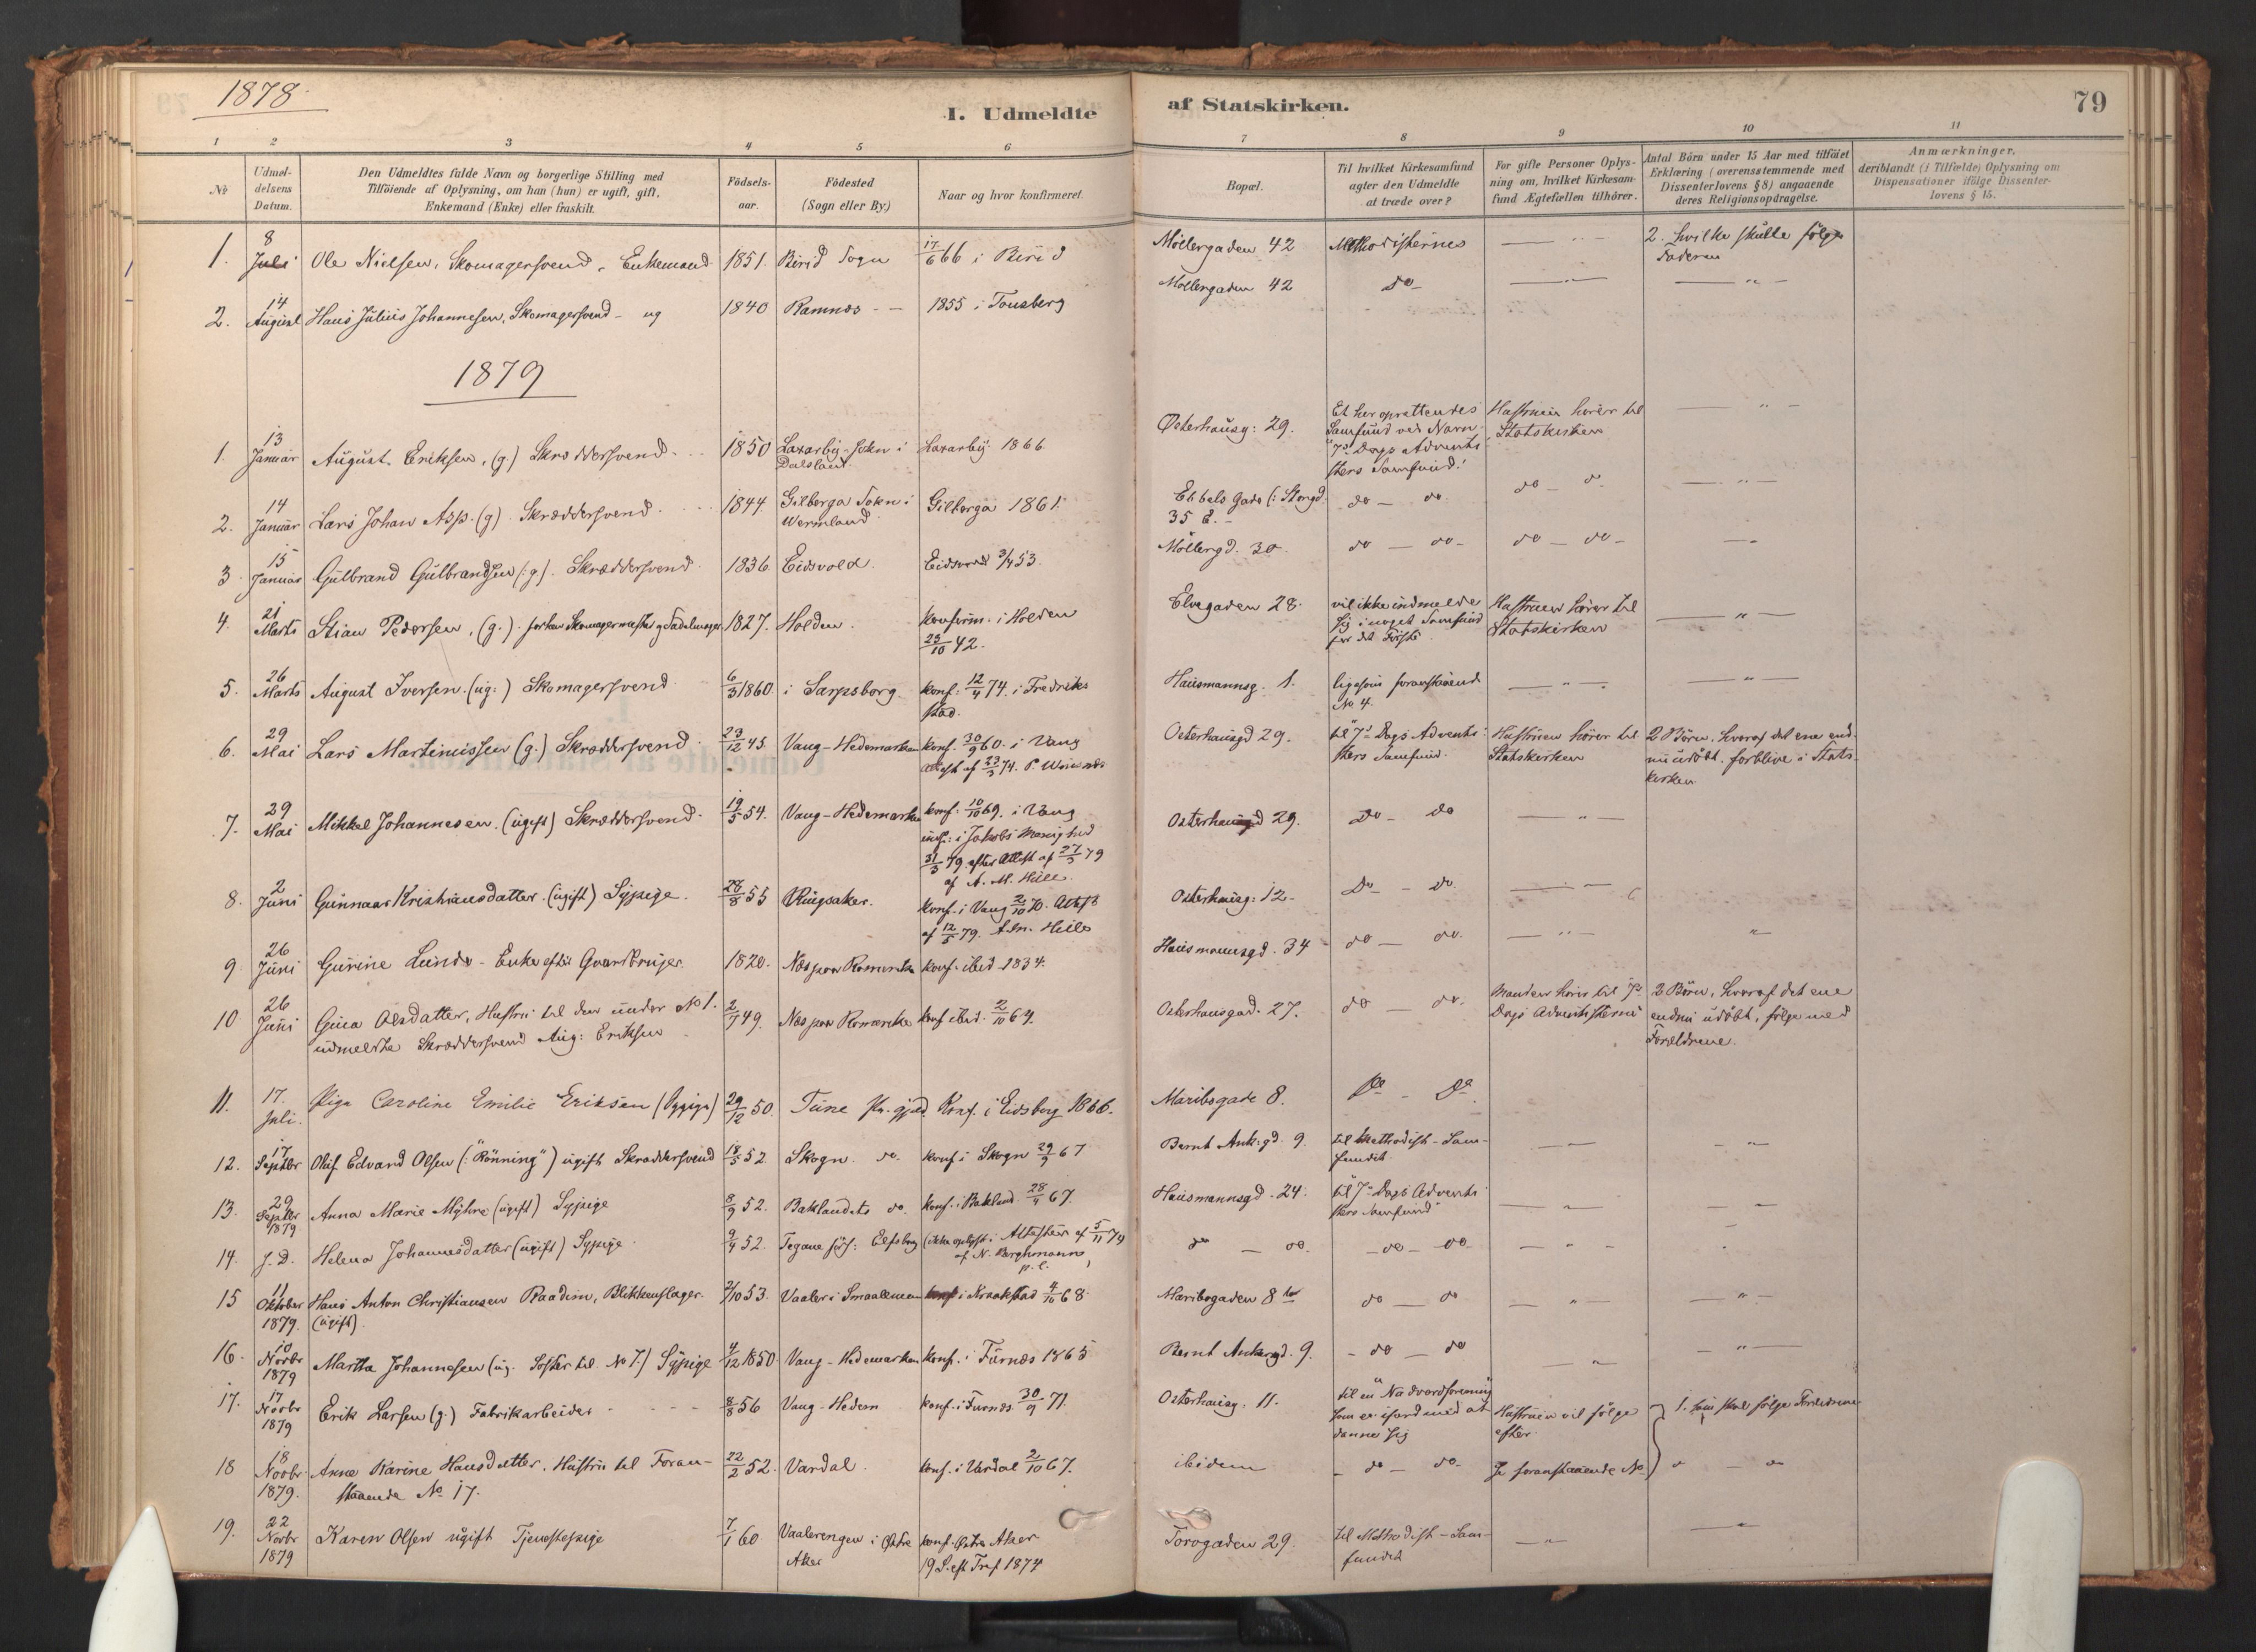 1878.
I. Udmeldte af Statskirken.
79
1 2 3 4 5 6 7 8 9 10 11
No
Udmeldelsens Datum.
Den Udmeldtes fulde Navn og borgerlige Stilling med Tilföiende af Oplysning, om han (hun) er ugift, gift, Enkemand (Enke) eller fraskilt.
Födselsaar.
Födested (Sogn eller By.)
Naar og hvor konfirmeret.
Bopæl.
Til hvilket Kirkesamfund agter den Udmeldte at træde over?
For gifte Personer Oplysning om, hvilket Kirkesamfund Ægtefællen tilhörer.
Antal Börn under 15 Aar med tilföiet Erklæring (overensstemmende med Dissenterlovens § 8) angaaende deres Religionsopdragelse.
Anmærkninger, deriblandt (i Tilfælde) Oplysning om Dispensationer ifölge Dissenterlovens § 15.
1. 8 Juli Ole Nielsen, Skomagersvend, Enkemand 1851. Birid Sogn 17/6 66 i Birid Möllergaden 42 Methodisternes — " — 2. hvilke skulle fölge Faderen
2. 14 August Hans Julius Johannesen, Skomagersvend - ug 1840 Ramnæs - — 1855 i Tonsberg Möllergaden 42 do — " — — " —
1879
1. 13 Januar August Eriksen, (g) Skræddersvend 1850 Laxarby Sokn i Dalsland Laxarby 1866. Osterhausg: 29. Et her oprettendes Samfund ved Navn "7de Dags Adventisters Samfund." Hustruen hörer til Statskirken — " —
2. 14 Januar Lars Johan Asp. (g). Skræddersvend 1844. Gilberga Sokn i Wermland Gilberga 1861. Ebbels Gade (: Storgd. 35 b. - do — do. do — do — " —
3. 15 Januar Gulbrand Gulbrandsen (:g). Skræddersvend 1836. Eidsvold. Eidsvold 3/4 53. Möllergd. 30. do — do — do — do — — "
4. 21 Marts Stian Pedersen, (g.). forhen Skomagermester og Sadelmager 1827. Holden. Konfirm. i Holden 23/10 42. Elvegaden 28. vil ikke indmelde sig i noget Samfund for det Förste. Hustruen hörer til Statskirken — " —
5. 26 Marts August Iversen. (ug:) Skomagersvend 6/3 1860 i Sarpsborg. konf: 12/4 74. i Fredrikstad. Hausmannsg. 1. ligesom foranstaaende No 4. — " — — " —
6. 29 Mai Lars Martinussen (g.) Skræddersvend 23/12 45. Vang-Hedemarken konf. 30/9 60. i Vang Attest af 23/3 74. Osterhausgd 29. til "7de Dags Adventisters Samfund. Hustruen hörer til Statskirken 2 Börn, hvoraf det ene endnu udöbt. forblive i Statskirken.
7. 29 Mai Mikkel Johannesen. (ugift) Skræddersvend. 19/5 54. Vang-Hedemarken konf: 10/10 69. i Vang indf: i Jakobs Menighed 31/3 79 efter Attest af 27/3 79 af A. M. Hille. Osterhausgd 29. Do - do — " —
8. 2 Juni Gunnaas Kristiansdatter. (ugift) Sypige. 28/8 55 Ringsaker. konf. i Vang 2/10 70. Attest af 12/5 79. Hille Osterhausg: 12. Do - do. — " —
9. 26 Juni Gurine Lunde - Enke efter Gaardbruger. 1820. Næs paa Romerike konf. ibid 1834. Hausmannsgd. 34 do — do. — " — "
10 26 Juni Gina Olsdatter, Hustru til den under No 1. udmeldte Skræddersvend Aug: Eriksen 2/7 49. Næs paa Romerike konf ibid. 2/10 64. Osterhausgad. 27. do — do. Manden hörer til 7de Dags Adventisterne 2 Börn, hvoraf det ene endnu udöbt, fölge med Forældrene.
11. 17. Juli. Pige Caroline Emilie Eriksen (Sypige) 29/12 50. Tune Konf. i Eidsberg 1866. Maribogade 8. Do - Do.
12. 17 Septbr Oluf Edvard Olsen (: "Rönning") ugift Skræddersvend 18/5 52. Skogn. do. konf i Skogn 29/9 67 Bernt Ank:gd. 9. til Methodist-Samfundet — " — — " —
13. 29 Septbr 1879. Anna Marie Myhre (ugift) Sypige 8/9 52. Baklandets do. konf. i Bakland. 28/4 67. Hausmannsgd. 24. til 7de Dags Adventisters Samfund" — " —
14. J. D. Helena Johannesdatter (ugift) Sypige. 9/4 52. Elfsborg (ikke oplyst i Attesten af 5/11 74 af N. Berghmann, p. l. do — do. - do — do — " —
15 11 Oktober 1879. Hans Anton Christiansen Raadim, Blikkenslager. (ugift). 2/10 53. Vaaler i Smaalenene konf i Kraakstad 4/10 68. Maribogaden 8 do — do — " — — " —
16. 10 Novbr 1879 Martha Johannesen (ug. Söster til No 7.) Sypige 4/12 1850 Vang-Hedemarken konf. i Furnes 1865 Bernt Ankersgd. 9. - do — do — " — — " —
17. 17 Novbr 1879 Erik Larsen (g.) Fabrikarbeider 8/8 56 Vang-Hedem konf. i Furnes 30/9 71. Osterhausg. 11. til en "Nadverdforening som er ifærd med at danne sig Hustruen vil fölge efter. 1. som skal fölge Forældrene
18 18 Novbr. 1879. Anne Karine Hansdatter. Hustru til Foranstaaende No 17. 22/2 52. Vardal. konf. i Vardal 2/10 67. ibidem - do — do. Se foranstaaende No " — "
19. 22 Novbr 1879 Karen Olsen ugift Tjenestepige 7/1 60 Vaalerengen i Östre Aker konf. Östre Aker 19 S. eft. Tref 1874 Torvgaden 29. til Methodist-Samfundet — " — — " —